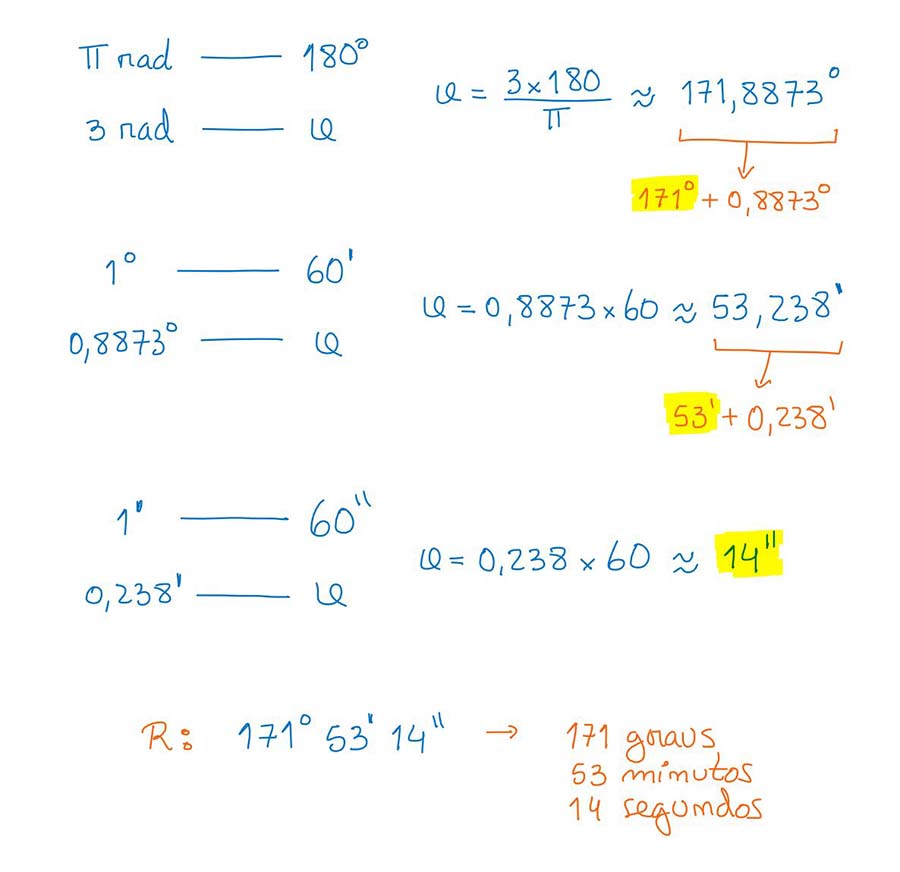 π rad — 180°
3 rad — α
α = 3×180 / π ≈ 171,8873°
171° + 0,8873°
1° — 60'
0,8873° — α
α = 0,8873×60 ≈ 53,238'
53' + 0,238'
1' — 60''
0,238' — α
α = 0,238 × 60 ≈ 14''
R: 171° 53' 14'' → 171 graus,
53 minutos
14 segundos